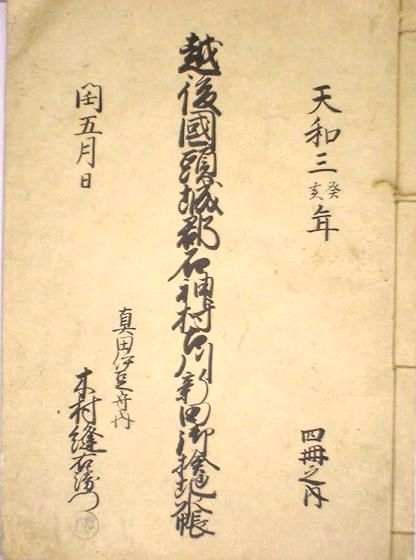 天和三癸亥年
四冊之内
越後國頭城郡石神村古川新田御検地帳
真田伊豆守内
木村縫右衛門
閏五月日